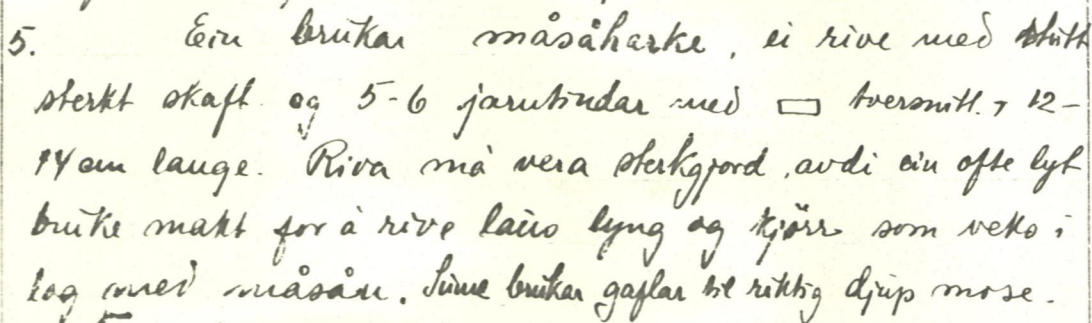 5. Ein brukar måsåharke, ei rive med stutt
sterkt skaft og 5-6 jarntindar med ▭ tversnitt, 12-
14 cm lange. Riva må vera sterkgjord, avdi ein ofte lyt
bruke makt for å rive laus lyng og kjörr som veks i
lag med måsån. Sume brukar gaflar til riktig djup mose.